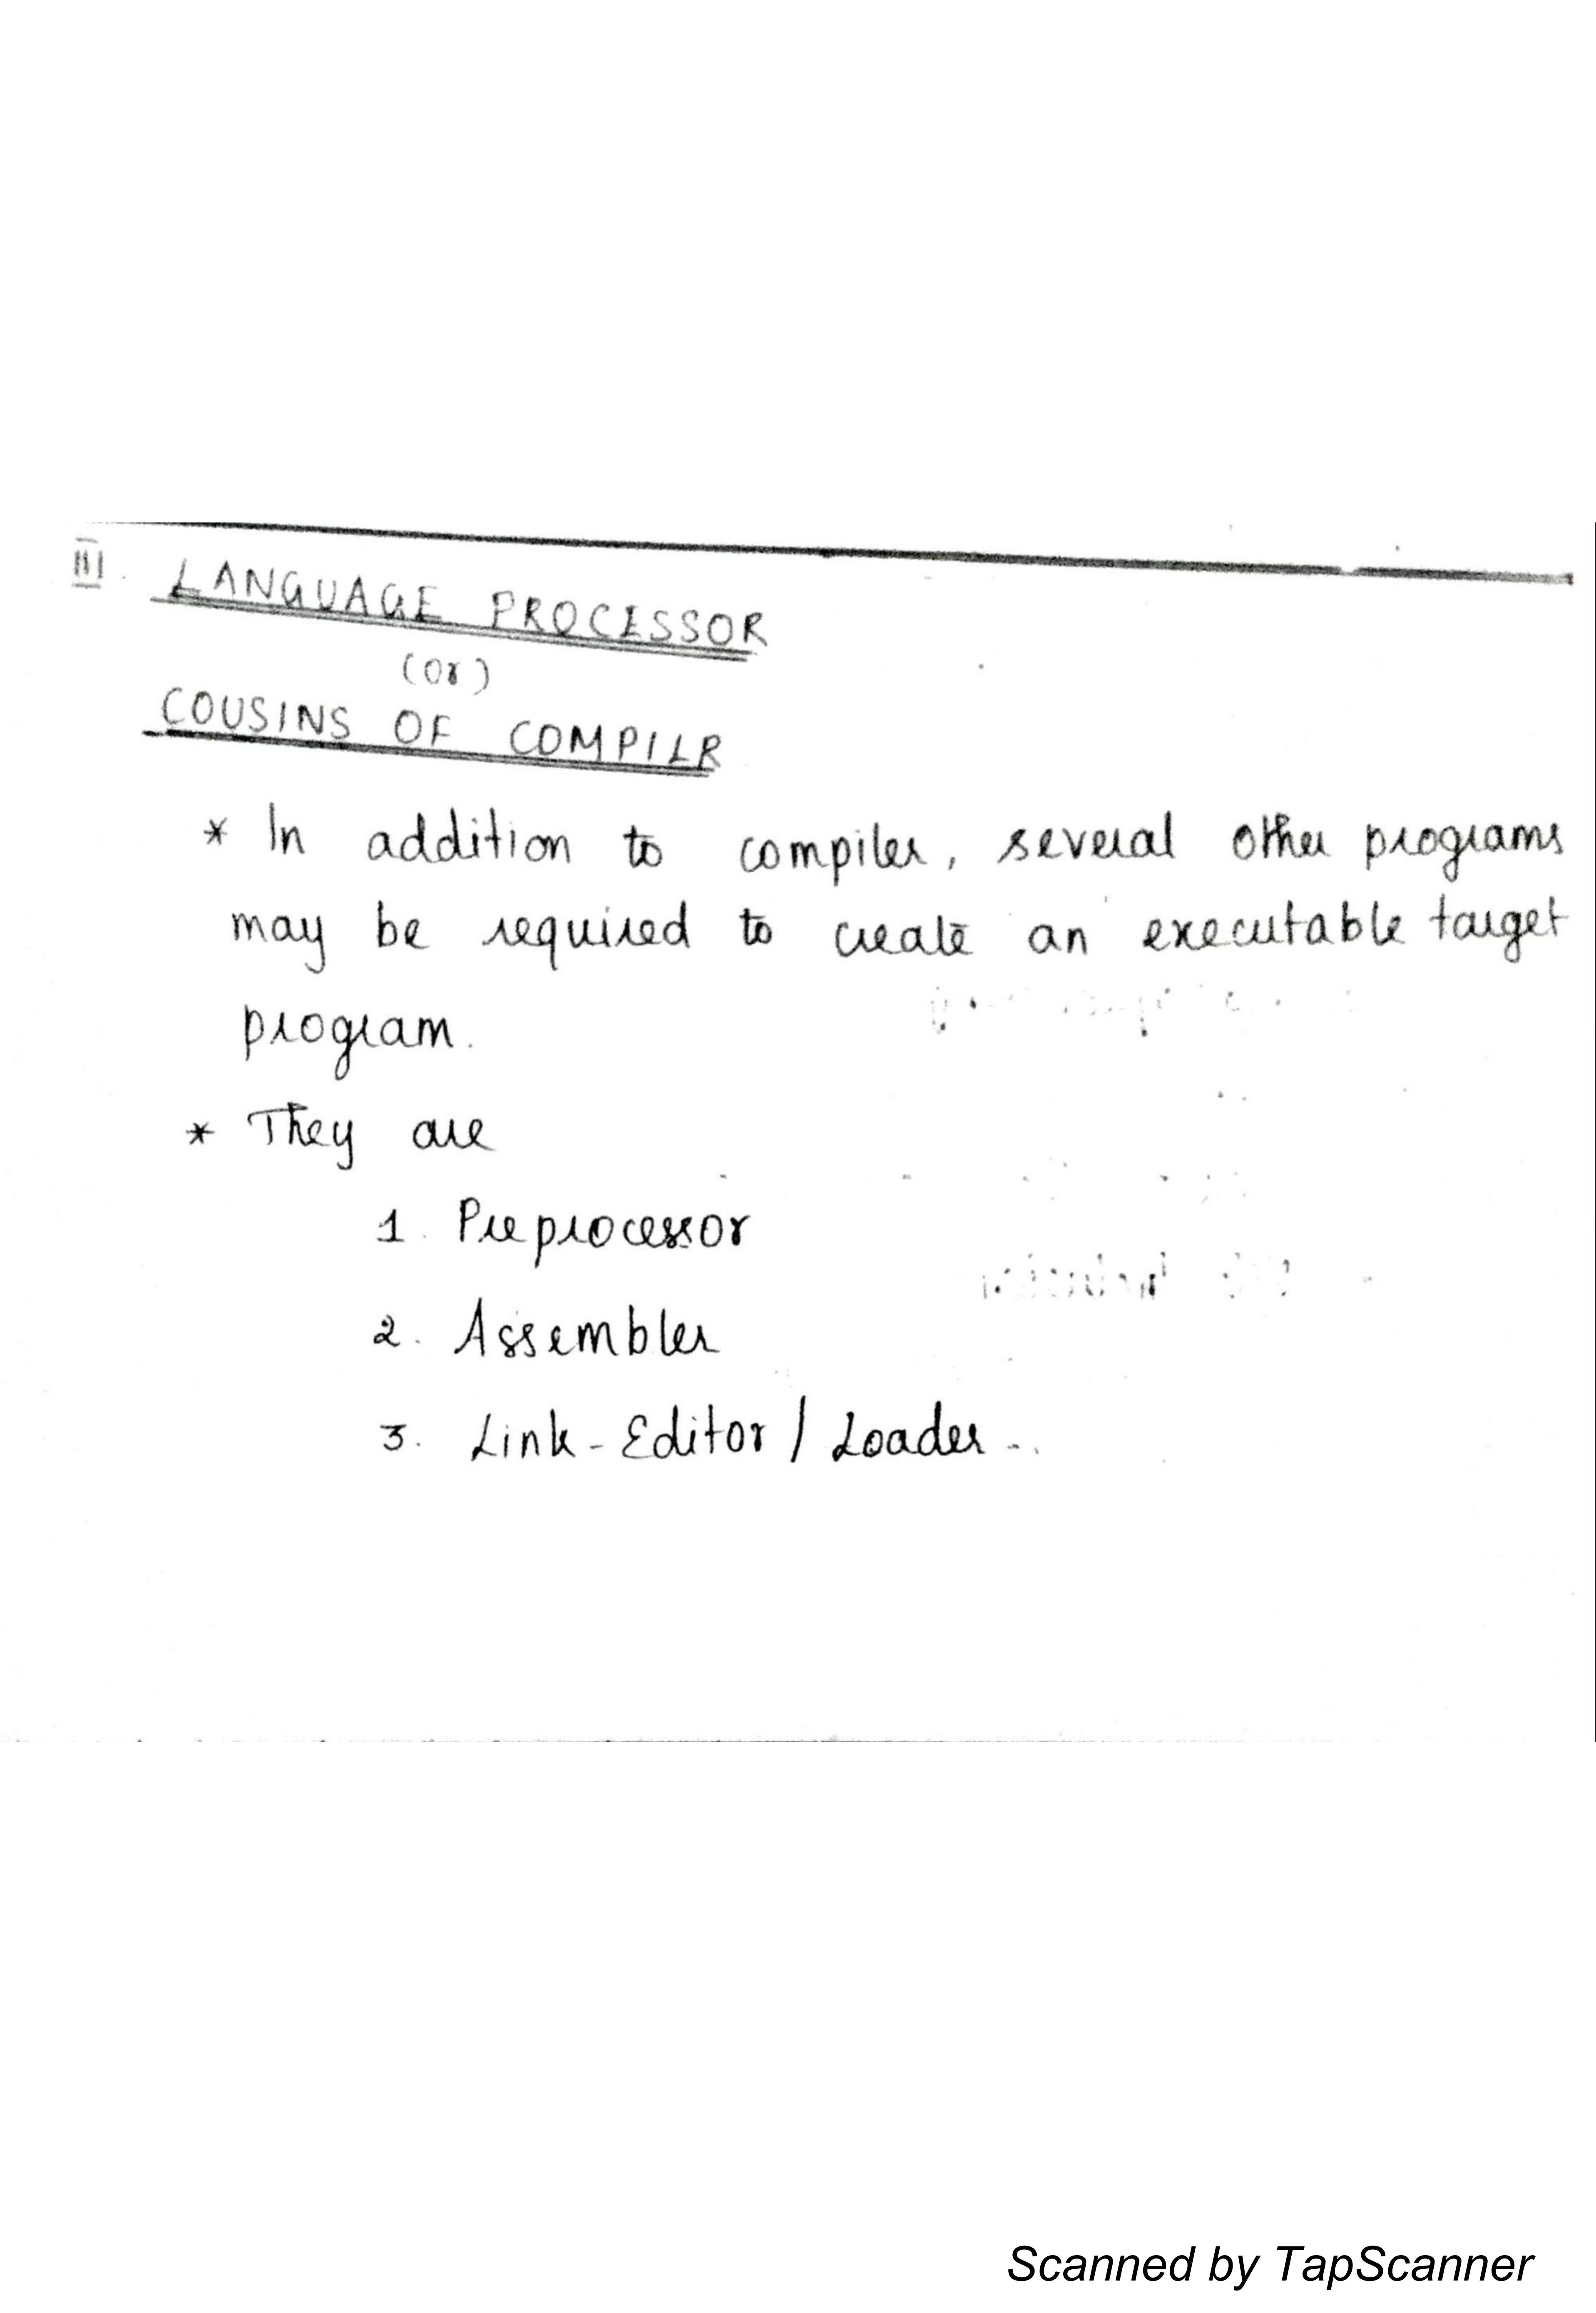 III. LANGUAGE PROCESSOR
(Or)
COUSINS OF COMPILR
* In addition to compiler, several other programs
may be required to create an executable target
program.
* They are
1. Preprocessor
2. Assembler
3. Link-Editor / Loader
Scanned by TapScanner